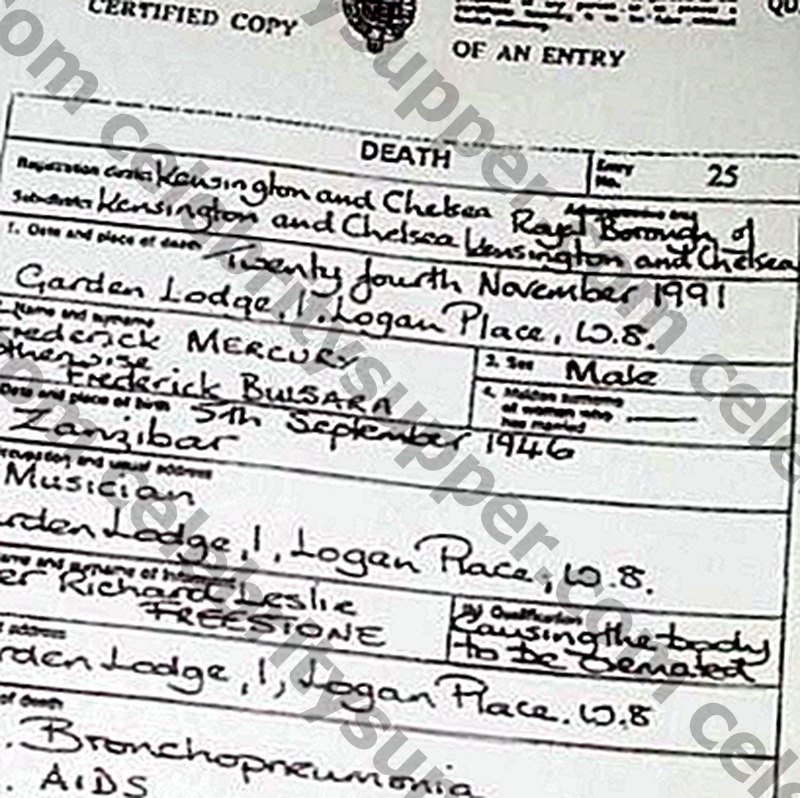 CERTIFIED COPY
OF AN ENTRY
QU
DEATH
Entry No. 25
Registration district Kensington and Chelsea
Administrative area
Royal Borough of
Sub-district Kensington and Chelsea
Kensington and Chelsea
1. Date and place of death
Twenty fourth November 1991
Garden Lodge, 1, Logan Place, W.8.
Name and surname
Frederick MERCURY
otherwise
Frederick BULSARA
3. Sex Male
4. Maiden surname
of woman who
has married
Date and place of birth 5th September 1946
Zanzibar
Occupation and usual address
Musician
arden Lodge, 1, Logan Place, W.8.
ame and surname of informant
er Richard Leslie
FREESTONE
(b) Qualification
Causing the body
to be cremated
address
rden Lodge, 1, Logan Place. W.8
of death
. Bronchopneumonia
. AIDS
celebritysupper.com